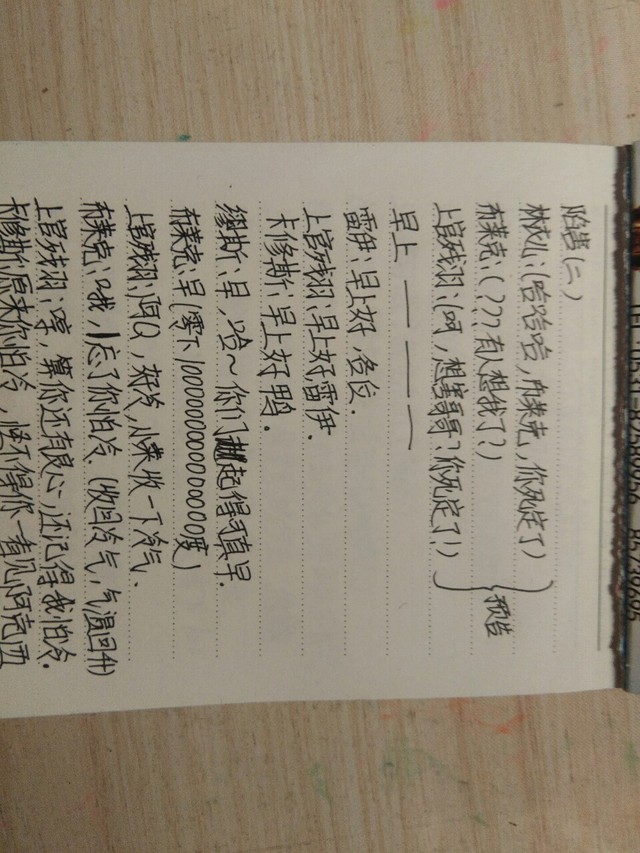 陷害(二)
林成心:(哈哈哈,布莱克,你死定了)
布莱克:(???有人想我了?)
上官残羽:(呵,想害哥哥?你死定了!)
预告
早上 — — — —
雷伊:早上好,各位.
上官残羽:早上好雷伊.
卡修斯:早上好鸭.
缪斯:早,哈~你们起得可真早.
布莱克:早(零下1000000000000000度)
上官残羽:阿Q,好冷,小莱收一下冷气.
布莱克:哦,忘了你怕冷.(收回冷气,气温回升)
上官残羽:哼,算你还有良心,还记得我怕冷.
卡修斯:原来你怕冷,怪不得你一看见阿克西